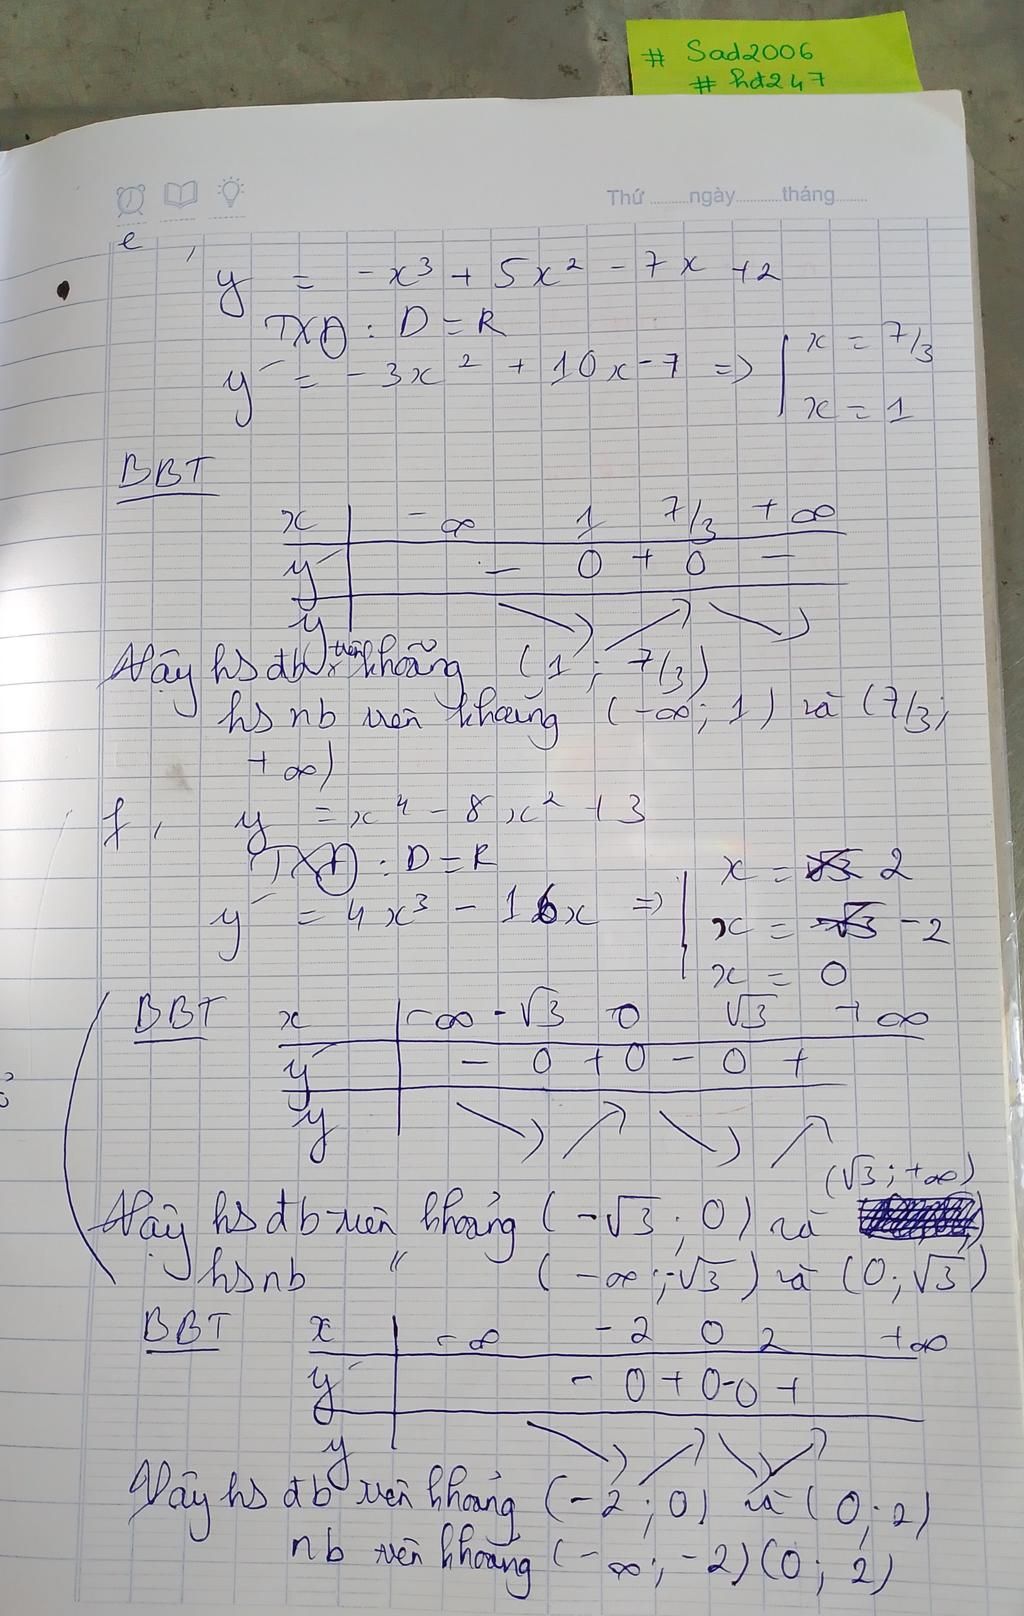 # Sad2006
# hd247
Thứ ........ngày...........tháng........
e,
y = -x³ + 5x² - 7x + 2
TXĐ : D = R
y' = -3x² + 10x - 7 => [ x = 7/3
x = 1
BBT
x -∞ 1 7/3 +∞
y' - 0 + 0 -
y ↘ ↗ ↘
Vậy hs đb trên khoảng (1 ; 7/3)
hs nb trên khoảng (-∞; 1) và (7/3;
+∞)
f, y = x⁴ - 8x² + 3
TXĐ : D = R
y' = 4x³ - 16x => [ x = √3 2
x = -√3 -2
x = 0
BBT x -∞ -√3 0 √3 +∞
y' - 0 + 0 - 0 +
y ↘ ↗ ↘ ↗
(√3 ; +∞)
Vậy hs đb trên khoảng (-√3 ; 0) và
hs nb " (-∞; -√3) và (0; √3)
BBT x -∞ -2 0 2 +∞
y' - 0 + 0 - 0 +
y ↘ ↗ ↘ ↗
Vậy hs đb trên khoảng (-2 ; 0) và (0 ; 2)
nb trên khoảng (-∞; -2) (0 ; 2)